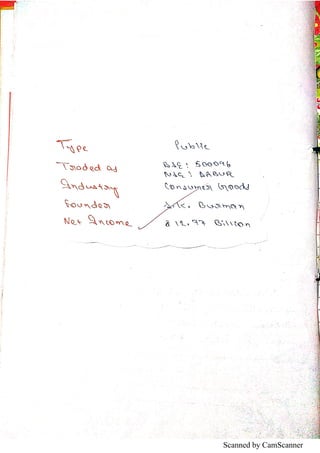 Type Public
Traded as BSE : 500096
NSE : DABUR
Industry Consumer Goods
Founder S.K. Burman
Net Income 12.77 Billion
Scanned by CamScanner